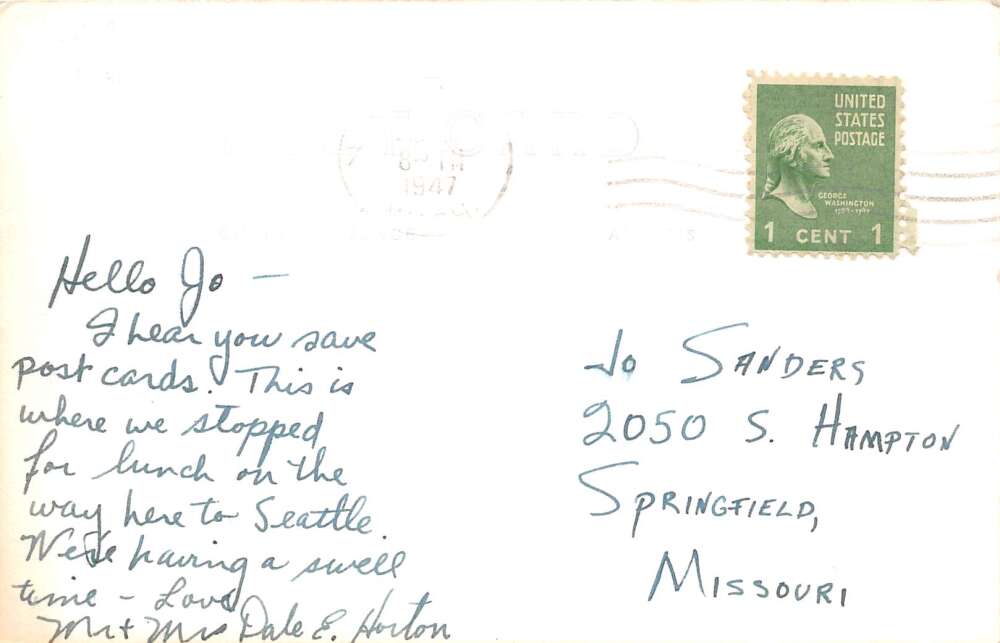 8 PM
1947
UNITED
STATES
POSTAGE
GEORGE
WASHINGTON
1 CENT 1
Hello Jo —
I hear you save
post cards. This is
where we stopped
for lunch on the
way here to Seattle.
We're having a swell
time – Love
Mr + Mrs Dale E. Horton
Jo SANDERS
2050 S. HAMPTON
SPRINGFIELD,
MISSOURI